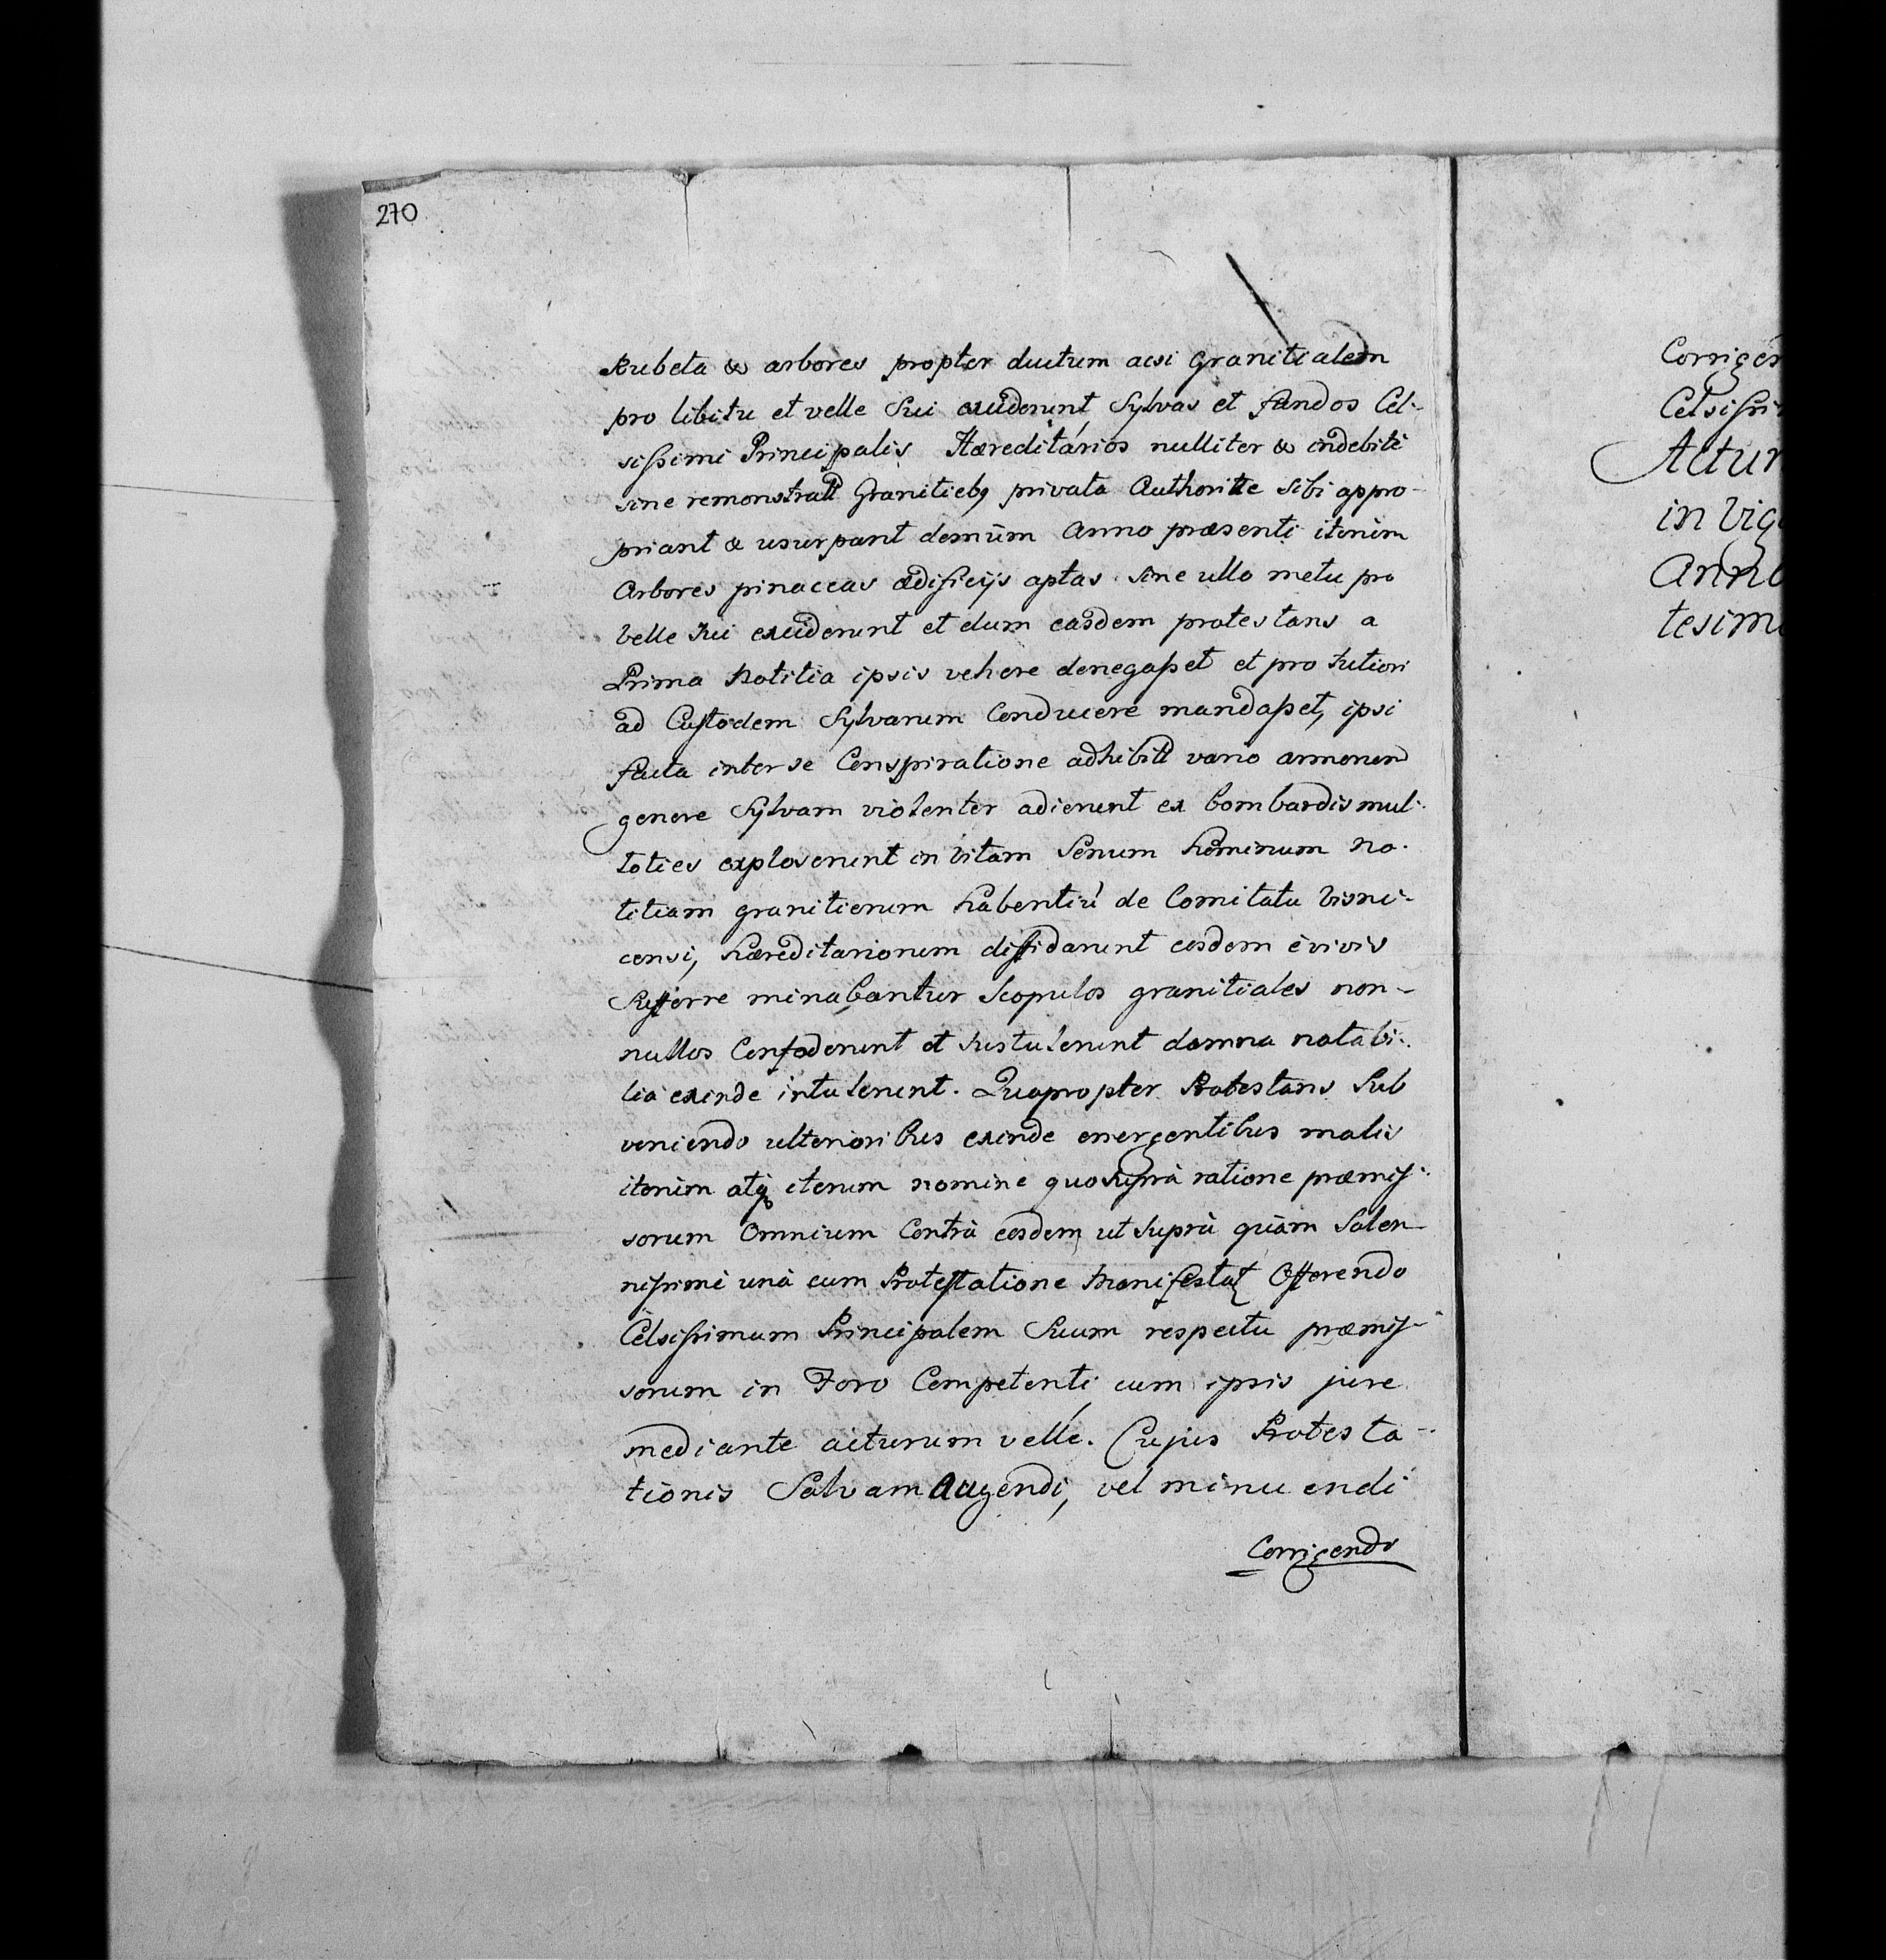 270
Rubeta & arbores propter ductum acsi Granitialem
pro libitu et velle Sui exciderunt, Sylvas et fundos Cel-
sissimi Principalis Hæreditários nulliter & indebitè
sine remonstratt Granitiebq privata Authoritte sibi appro-
priant & usurpant demùm Anno præsenti iterùm
Arbores pinaceas ædificijs aptas sine ullo metu pro
velle sui exciderunt et dum easdem protestans a
Prima Notitia ipsis vehere denegasset et pro tutiori
ad Custodem Sylvarum Conducere mandasset, ipsi
facta inter se Conspiratione adhibitt vario armorum
genere Sylvam violenter adierunt ex bombardis mul-
toties exploserunt in vitam Senum hominum no-
titiam granitierum habentiù de Comitatu Visni-
censi, hæreditariorum diffidarunt eosdem è vivis
Sufferre minabantur Scopulos granitiales non-
nullos Confoderunt et sustulerunt damna notabi-
lia exinde intulerunt. Quapropter Protestans Sub
veniendo ulterioribus exinde emergentibus malis
iterùm atq iterum nomine quo suprà ratione præmis-
sorum Omnium Contrà eosdem ut suprà quàm Solen-
nissimè unà cum Protestatione Manifestat Offerendo
Celsissimum Principalem Suum respectu præmis-
sorum in Foro Competenti cum ipsis jure
mediante acturum velle. Cujus Protesta-
tionis Salvam Augendi, vel minuendi
Corrigendi
Corrigen
Celsissi
Actum
in Vig
Anno
tesim